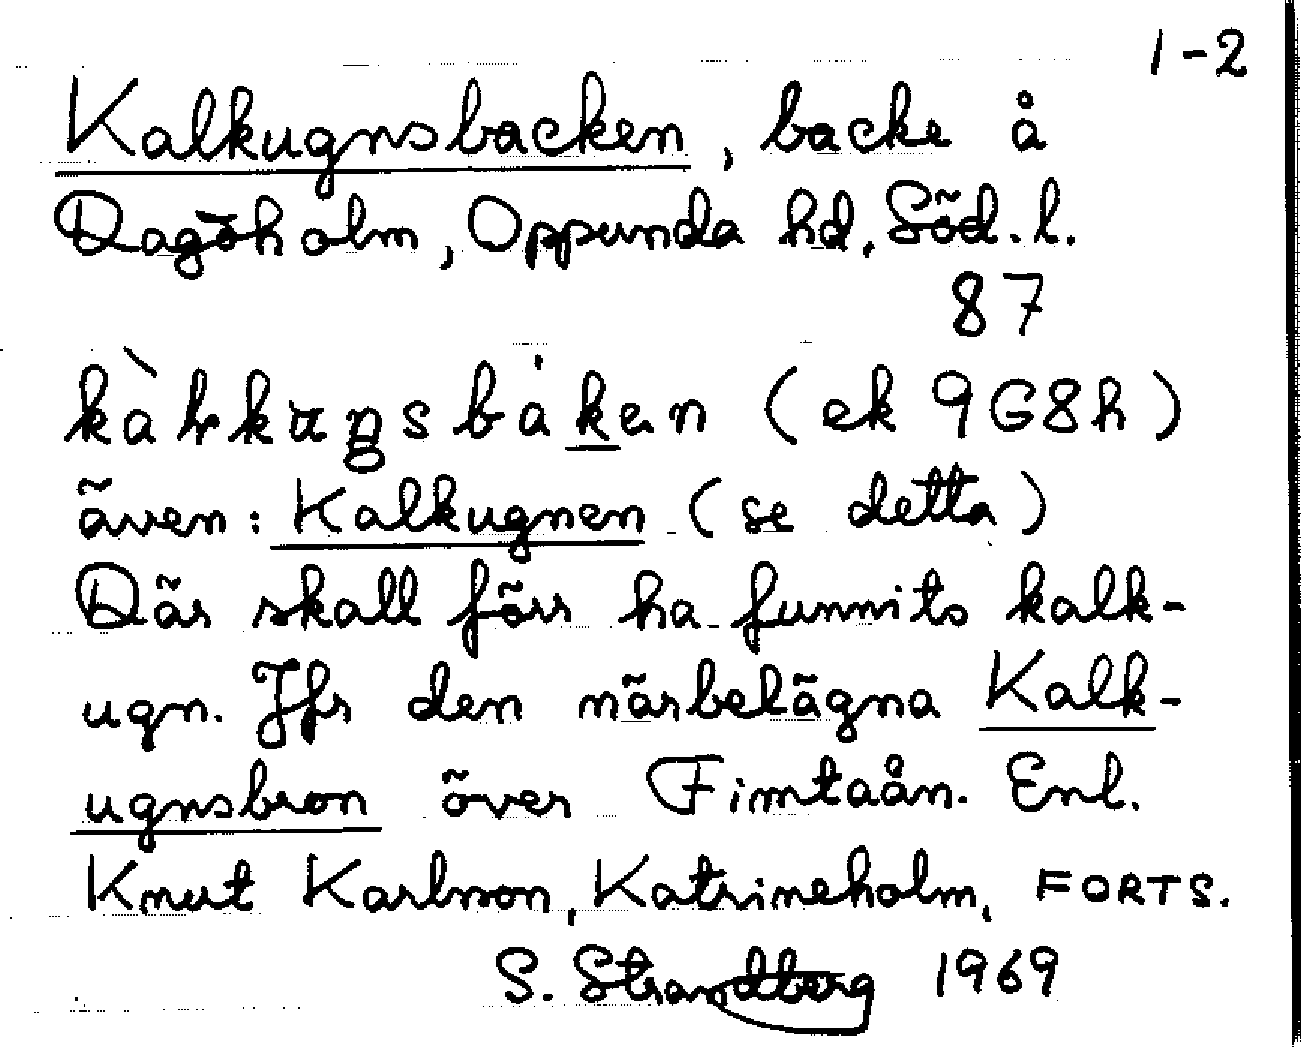 1-2
Kalkugnsbacken, backe å
Dagöholm, Oppunda hd, Söd. l.
87
(ek 9G8h)
även: Kalkugnen (se detta)
Där skall förr ha funnits kalk-
ugn. Jfr den närbelägna Kalk-
ugnsbron över Fimtaån. Enl.
Knut Karlsson, Katrineholm, FORTS.
S. Strandberg 1969